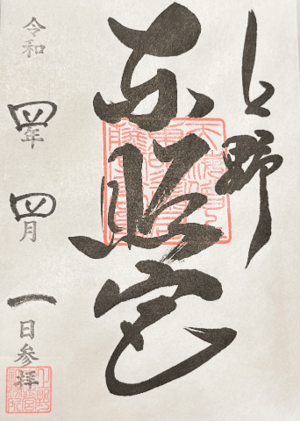 上野
東照宮
令和四年四月一日参拝